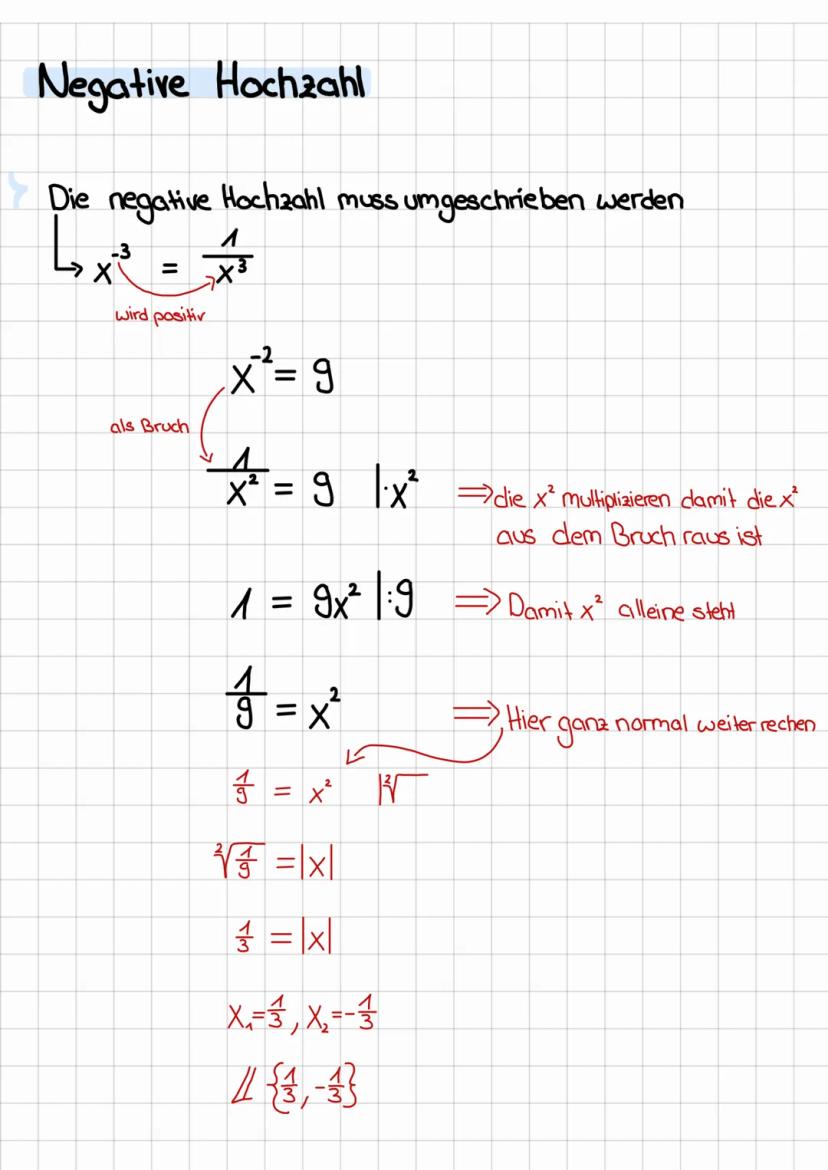 Negative Hochzahl
Die negative Hochzahl muss umgeschrieben werden
x⁻³ = 1/x³
wird positiv
x⁻² = 9
als Bruch
1/x² = 9 |·x² ⇒ die x² multiplizieren damit die x²
aus dem Bruch raus ist
1 = 9x² |:9 ⇒ Damit x² alleine steht
1/9 = x² ⇒ Hier ganz normal weiter rechen
1/9 = x² |²√
²√(1/9) = |x|
1/3 = |x|
x₁=1/3, x₂=-1/3
𝕃 {1/3, -1/3}